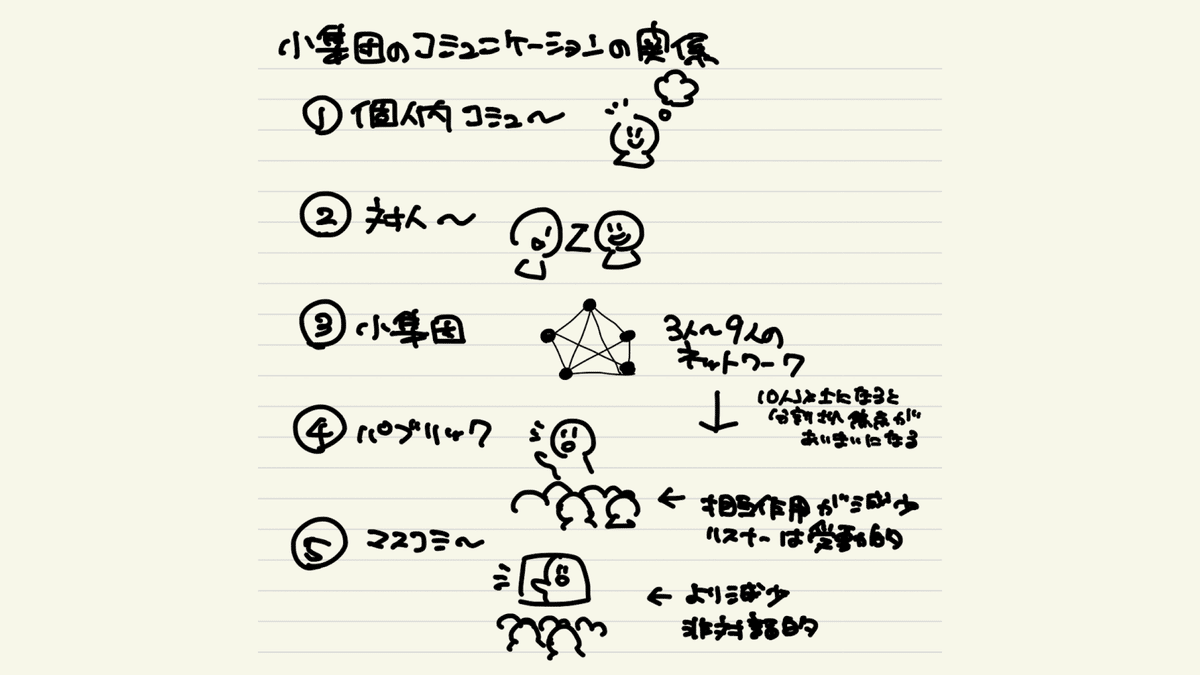 小集団のコミュニケーションの関係
① 個人内コミュ〜
② 対人〜
③ 小集団
3人〜9人の
ネットワーク
↓
10人以上になると
分割され焦点が
あいまいになる
④ パブリック
← 相互作用が減少
リスナーは受動的
⑤ マスコミ〜
← より減少
非対話的